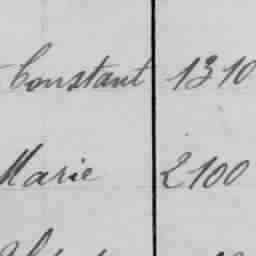 Constant 1310
Marie 2100